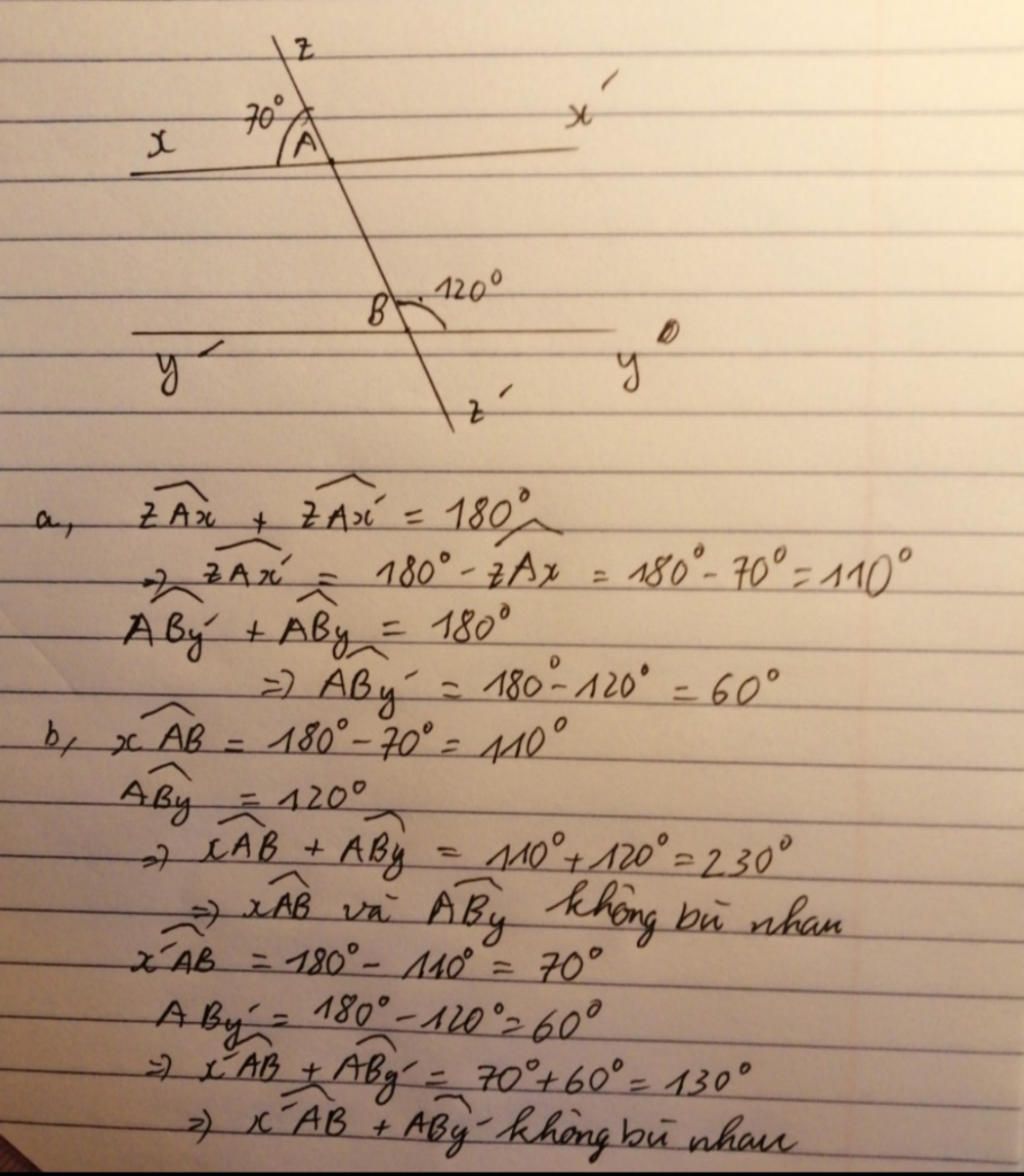 z
70°
x
A
x'
B
120°
y'
y
z'
a, zAx̂ + zAx̂' = 180°
=> zAx̂' = 180° - zAx̂ = 180° - 70° = 110°
ABŷ' + ABŷ = 180°
=> ABŷ' = 180° - 120° = 60°
b, xAB̂ = 180° - 70° = 110°
ABŷ = 120°
=> xAB̂ + ABŷ = 110° + 120° = 230°
=> xAB̂ và ABŷ không bù nhau
x'AB̂ = 180° - 110° = 70°
ABy' = 180° - 120° = 60°
=> x'AB̂ + ABŷ' = 70° + 60° = 130°
=> x'AB̂ + ABŷ' không bù nhau